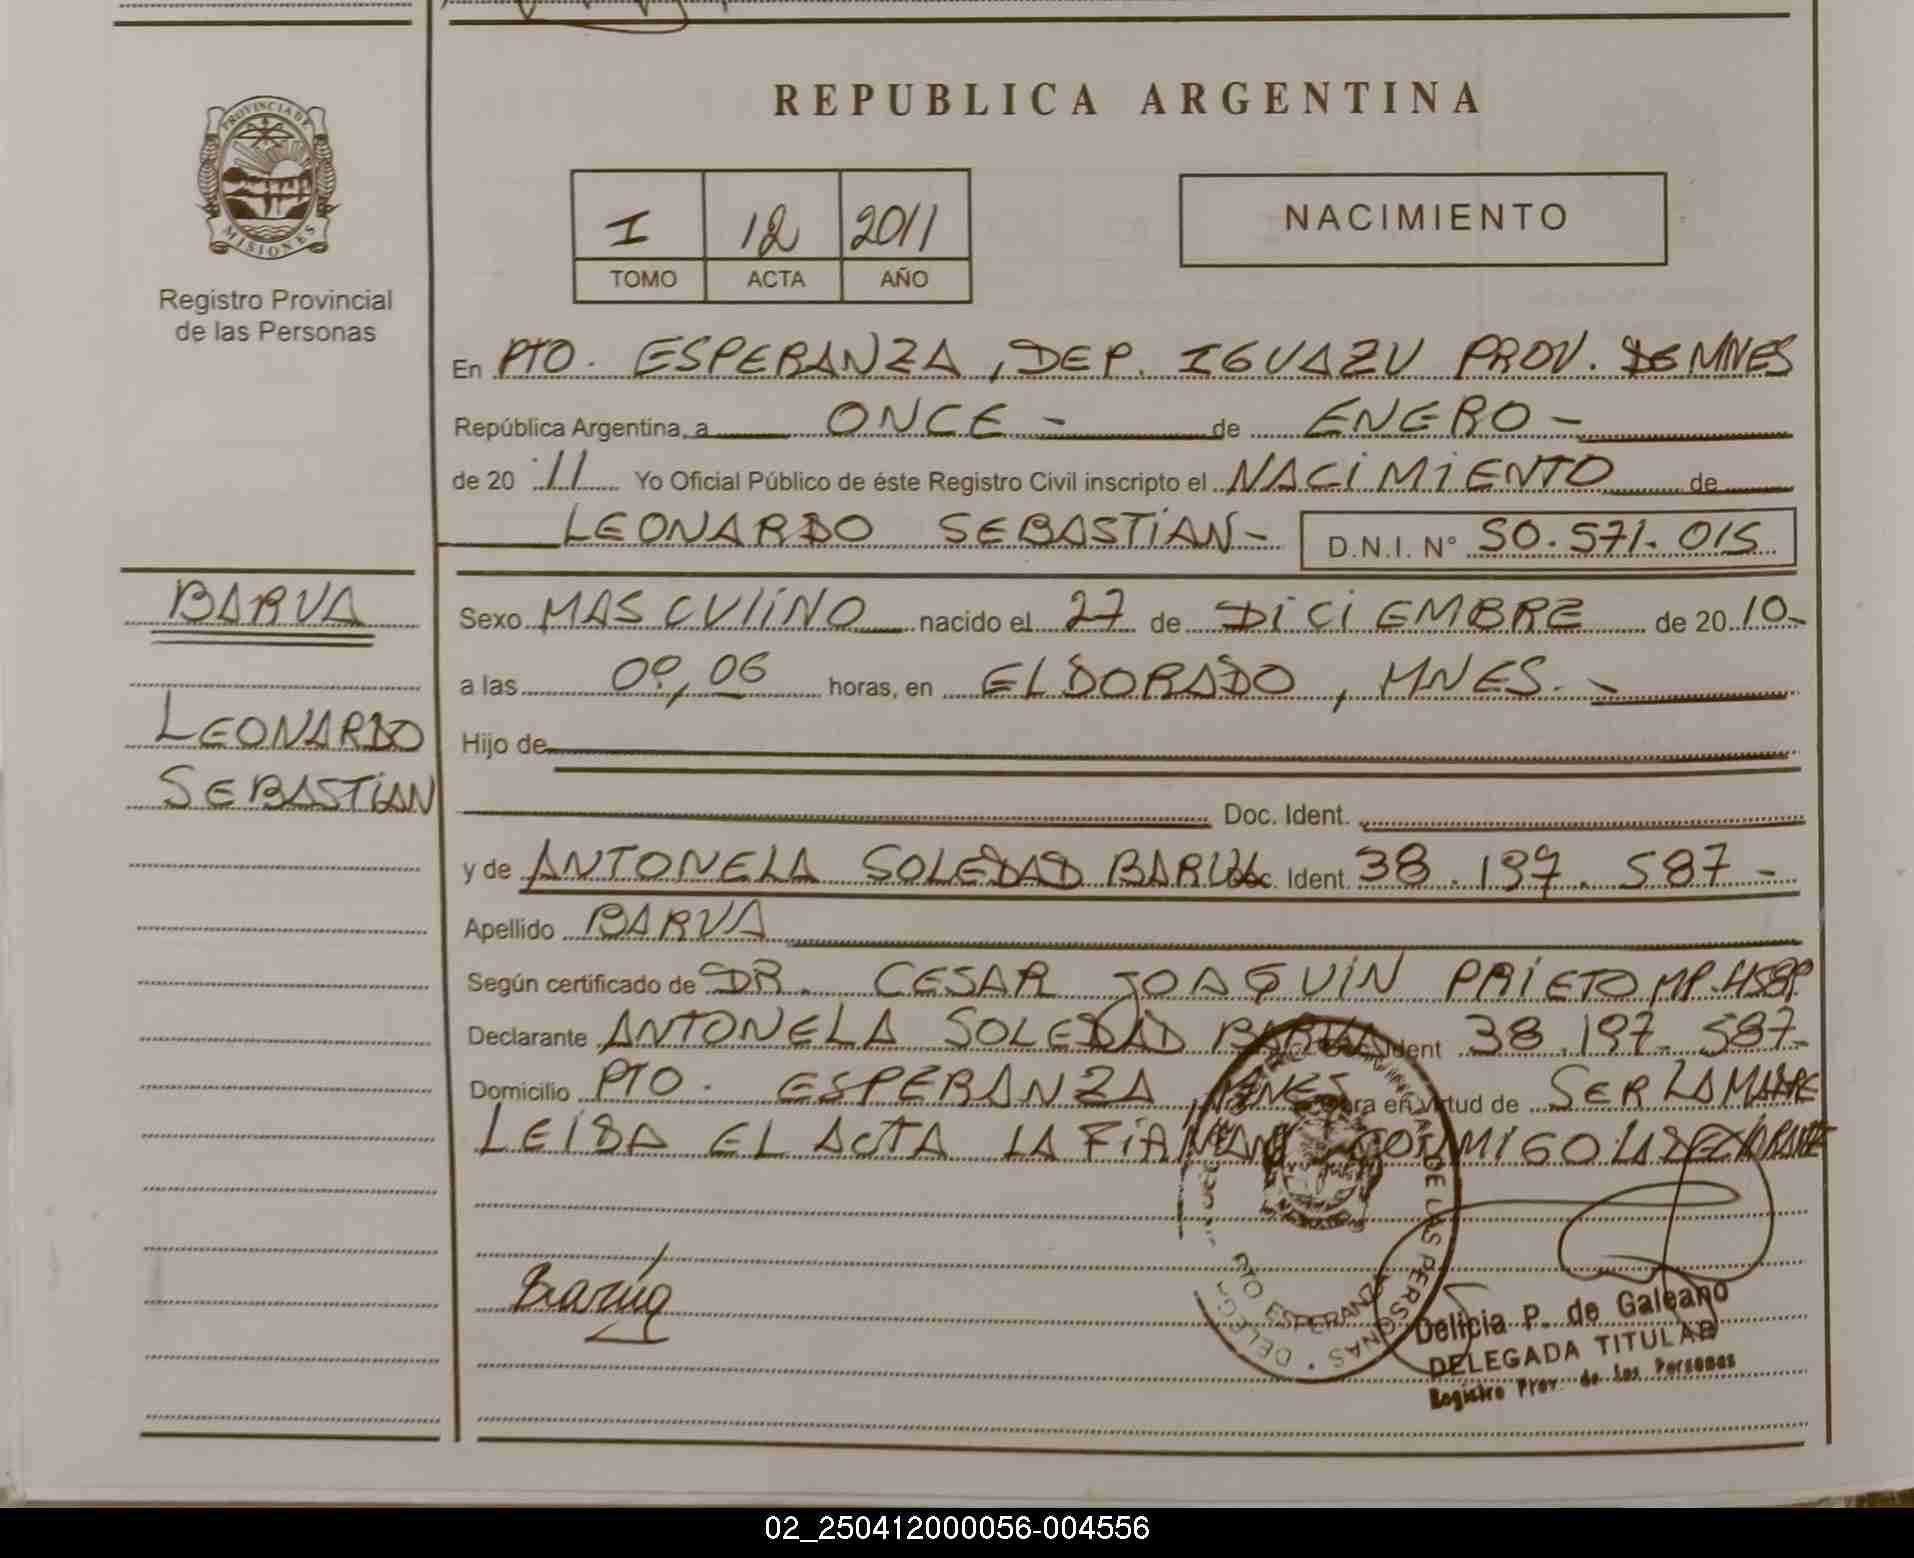 PROVINCIA DE
MISIONES
Registro Provincial
de las Personas
REPUBLICA ARGENTINA
I 12 2011
TOMO ACTA AÑO
NACIMIENTO
En PTO. ESPERANZA, DEP. IGUAZU PROV. DE MNES
República Argentina, a ONCE - de ENERO -
de 20 11 Yo Oficial Público de éste Registro Civil inscripto el NACIMIENTO de
LEONARDO SEBASTIAN - D.N.I. N° 50.571.015
BARUA
LEONARDO
SEBASTIAN
Sexo MASCULINO nacido el 27 de DICIEMBRE de 2010-
a las 09,06 horas, en ELDORADO, MNES. -
Hijo de
Doc. Ident.
y de ANTONELA SOLEDAD BARUA Doc. Ident. 38.197.587-
Apellido BARUA
Según certificado de DR. CESAR JOAQUIN PRIETO MP.
Declarante ANTONELA SOLEDAD BARUA Doc. Ident 38.197.587-
Domicilio PTO. ESPERANZA, MNES en virtud de SER LA MADRE
LEIDA EL ACTA LA FIRMAN CONMIGO LA DECLARANTE
Barua
PTO ESPERANZA
DE LAS PERSONAS
Delicia P. de Galeano
DELEGADA TITULAR
Registro Prov. de las Personas
02_250412000056-004556